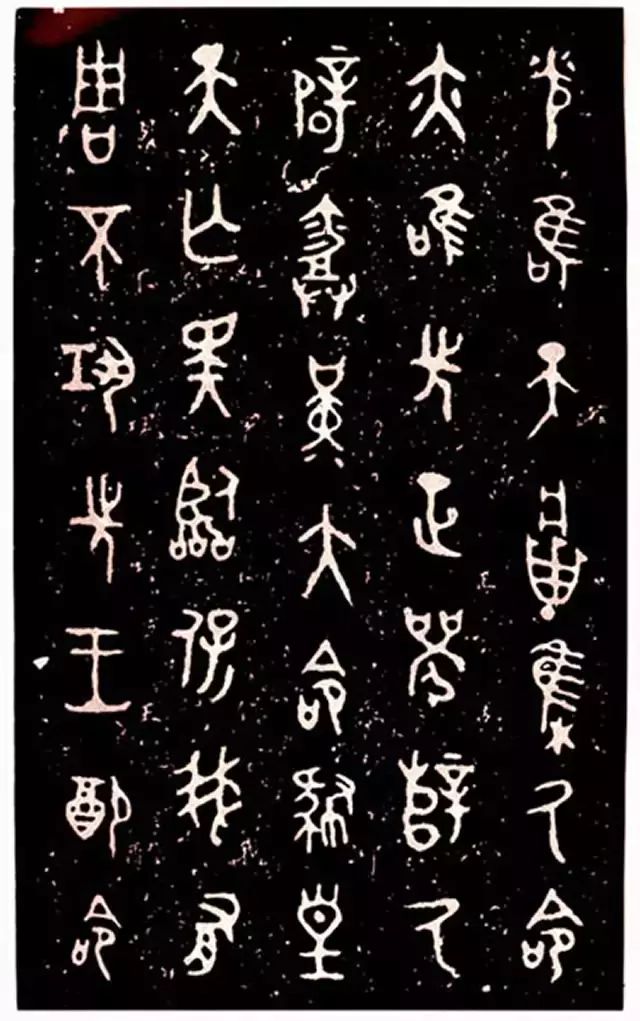 光唯天將集厥命
亦唯先正襄辥厥
辟勞堇大命肆皇
天亡斁臨保我有
周不巩先王配命